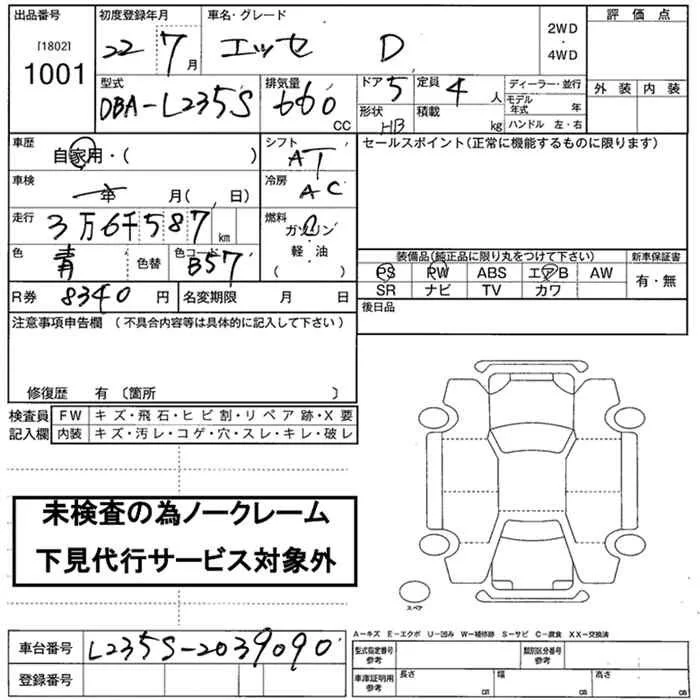 出品番号 初度登録年月 車名・グレード 評価点
[1802]
1001
22 7月 エッセ D 2WD・4WD
外装 内装
型式 DBA-L235S
排気量 660 CC
ドア 5
定員 4人
形状 HB
積載 kg
ディーラー・並行
モデル年式 年
ハンドル 左・右
車歴 自家用・( )
シフト AT
セールスポイント(正常に機能するものに限ります)
車検 年 月( 、 日)
冷房 AC
走行 3万6千587km
燃料 ガソリン
軽・油
( )
色 青 色替 色コード B57
装備品(純正品に限り丸をつけて下さい) 新車保証書
PS PW ABS エアB AW 有・無
SR ナビ TV カワ
R券 8340円 名変期限 月 日
後日品
注意事項申告欄 (不具合内容等は具体的に記入して下さい)
修復歴 有 〔箇所 〕
検査員記入欄
FW キズ・飛石・ヒビ割・リペア跡・X要
内装 キズ・汚レ・コゲ・穴・スレ・キレ・破レ
未検査の為ノークレーム
下見代行サービス対象外
スペア
A-キズ E-エクボ U-凹み W-補修跡 S-サビ C-腐食 XX-交換済
車台番号 L235S-2039090
登録番号
型式指定番号 参考
類別区分番号 参考
車庫証明用 参考
長さ cm 幅 cm 高さ cm